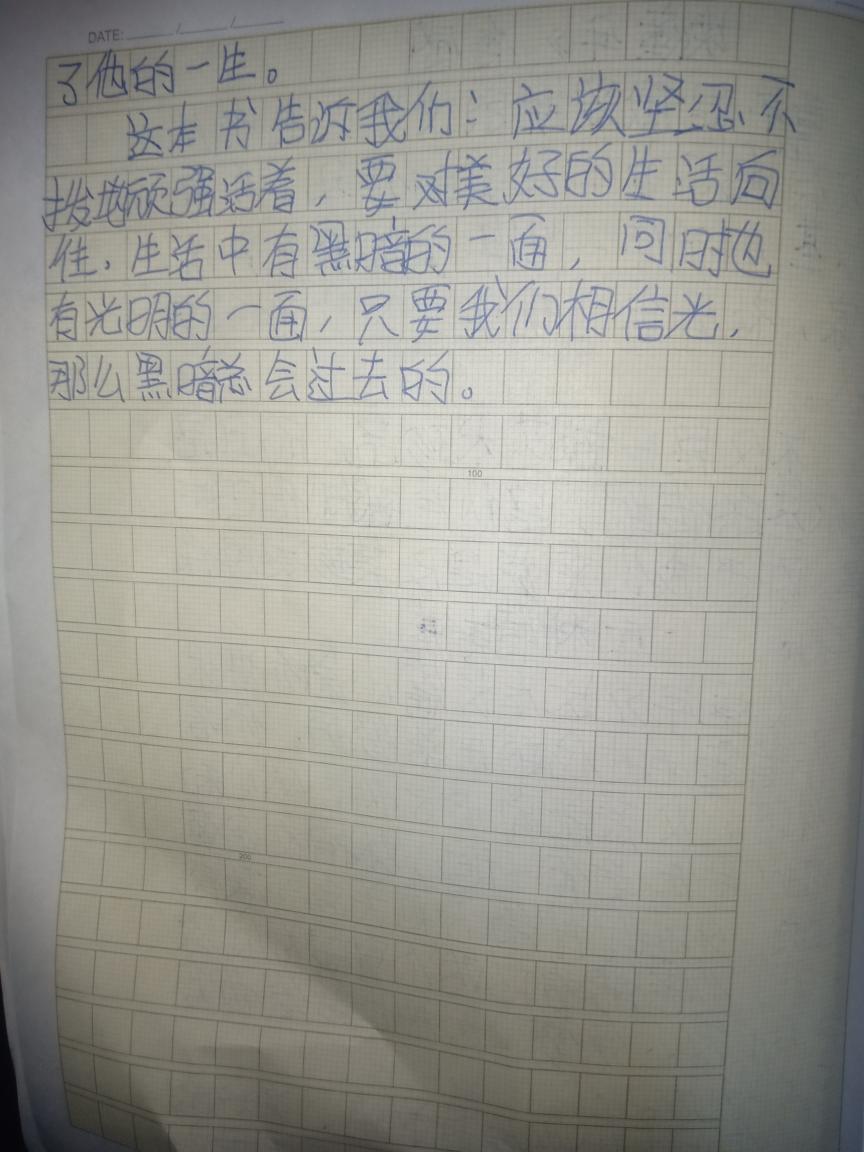 DATE: ____/____/____
了他的一生。
这本书告诉我们：应该坚忍不
拨地顽强活着，要对美好的生活向
往，生活中有黑暗的一面，同时也
有光明的一面，只要我们相信光，
那么黑暗总会过去的。
100
200